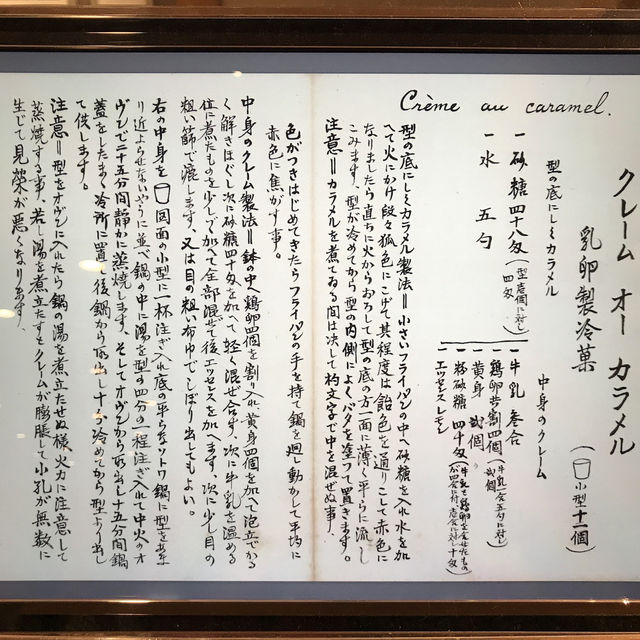 Crème au caramel.
クレーム オー カラメル
乳卵製冷菓
(小型十一個)
型の底にしくカラメル
一 砂糖四十八匁(型壱個に対し四匁)
一 水 五勺
中身のクレーム
一 牛乳 参合
一 鶏卵共割四個(牛乳五勺に対し
一 黄身 弐個
一 粉砂糖 四十匁
エッセスレモン
型の底にしくカラメル製法=小さいフライパンの中へ砂糖を入れ水を加
へて火にかけ段々狐色にこげて其程度は飴色を通りこして赤色に
なりましたら直ちに火からおろして型の底の方一面に薄く平らに流し
こみます。型が冷めてから型の内側によくバタを塗って置きます。
注意=カラメルを煮てゐる間は決して杓文字で中を混ぜぬ事。
色がつきはじめてきたらフライパンの手を持て鍋を廻し動かして平均に
赤色に焦がす事。
中身のクレーム製法=鉢の中へ鶏卵四個を割り入れ黄身四個を加て泡立てかる
く解きほぐし次に砂糖四十匁を加へて軽く混ぜ合す、次に牛乳を温める
位に煮たものを少しづゝ加へて全部混ぜて後エッセスを加へます、次に少し目の
粗い篩で漉します、又は目の粗い布巾でしぼり出してもよい。
右の中身を 図面の小型に一杯注ぎ入れ底の平らなソトワ鍋に型をあま
り近よらせないやうに並べ鍋の中に湯を型の四分の一程注ぎ入れて中火のオ
ヴンで二十五分間静かに蒸焼します、そしてオヴンから取出し十五分間鍋
蓋をしたまゝ冷所に置て後鍋から取出し十分冷めてから型より出し
て供します。
注意=型をオヴンに入れたら鍋の湯を煮立たせぬ様、火力に注意して
蒸焼する事、若し湯を煮立たすとクレームが膨脹して小孔が無数に
生じて見榮が悪くなります。